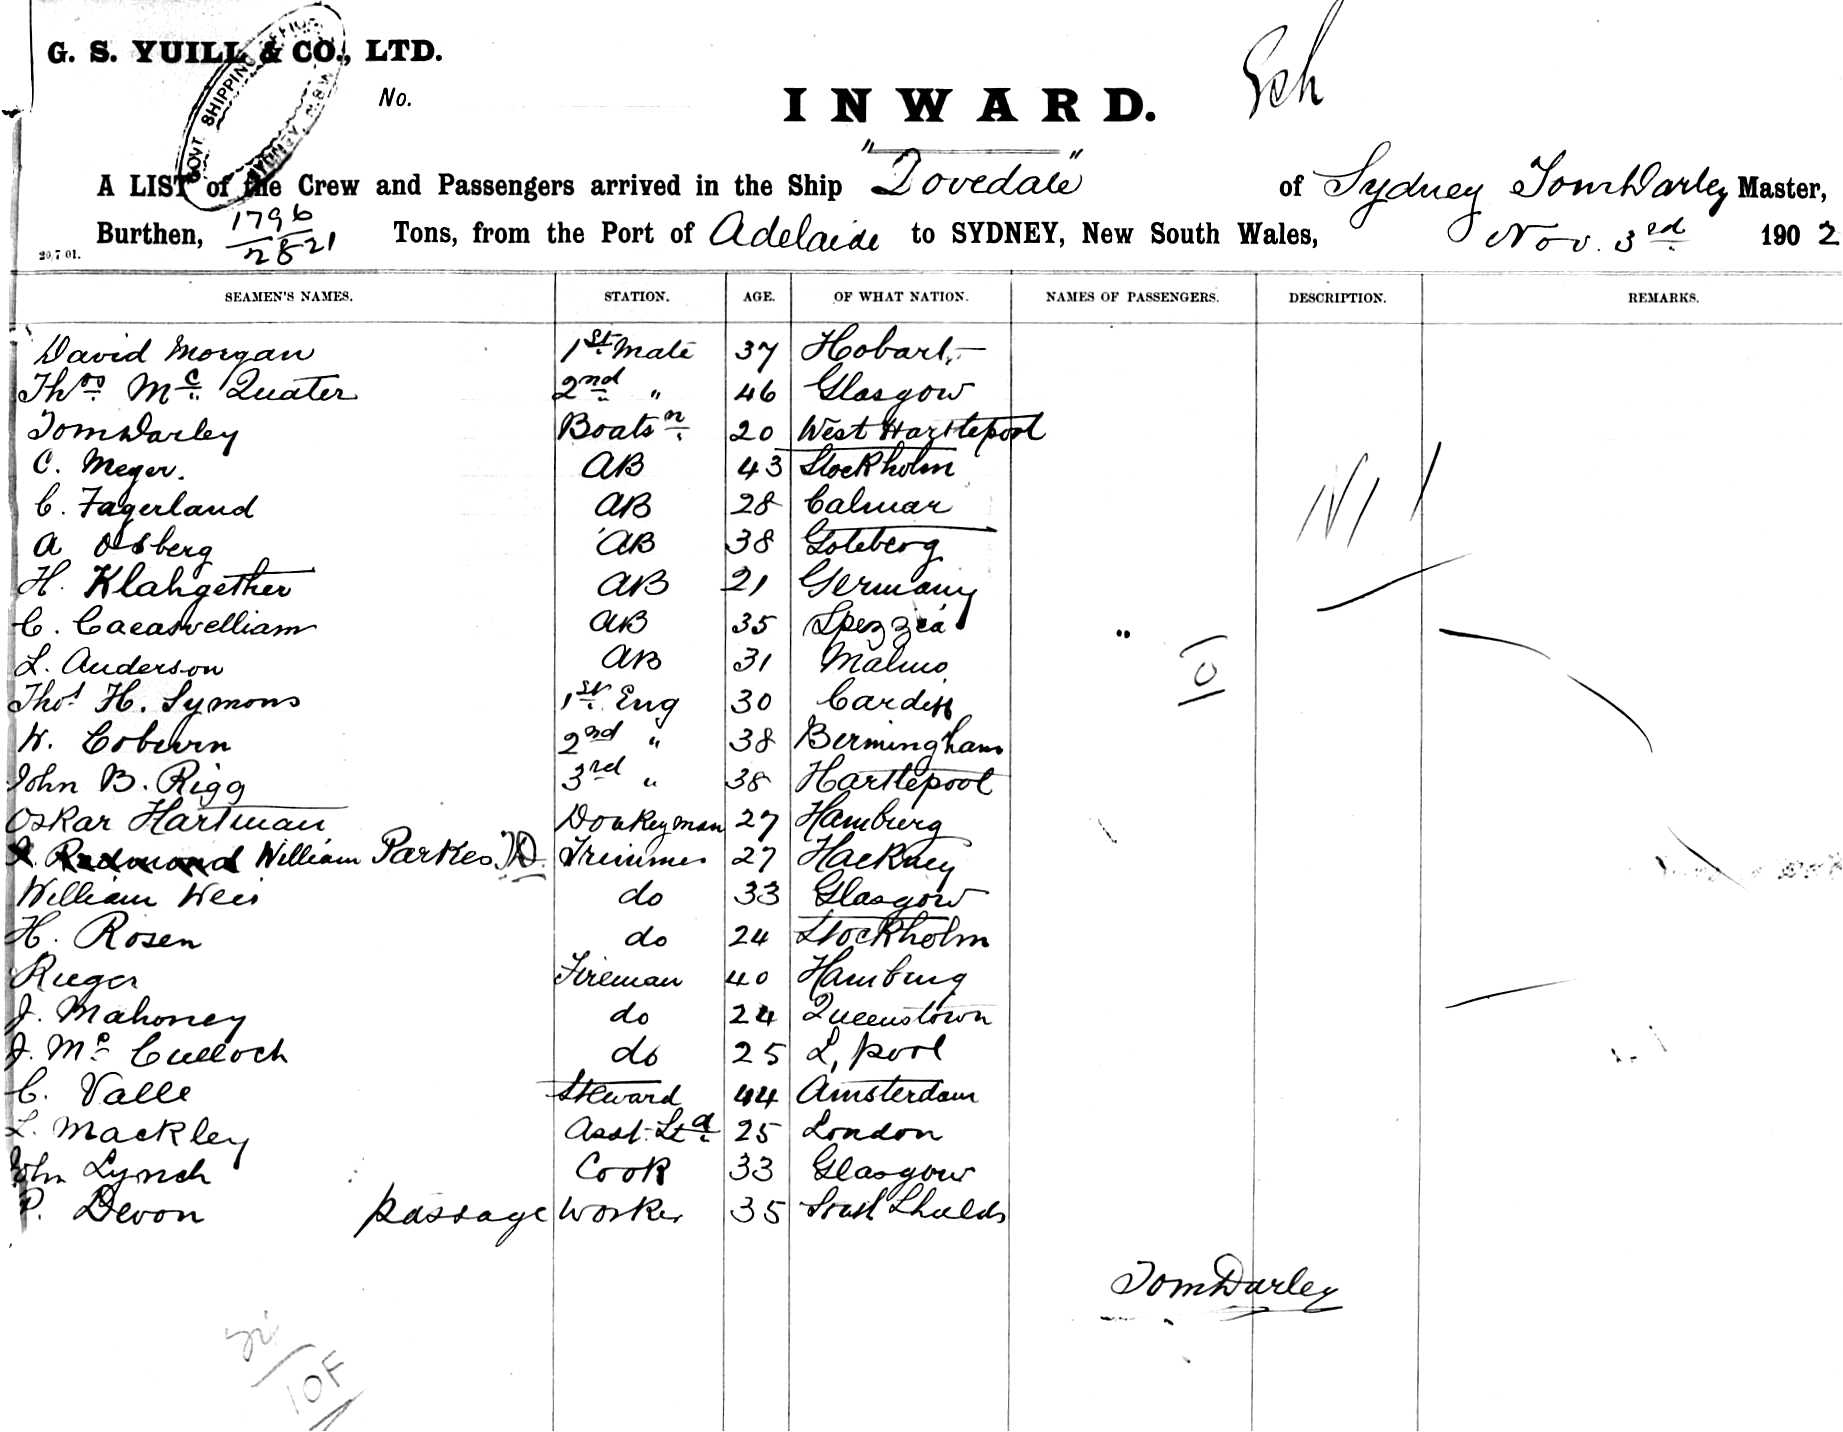 G. S. YUILL & CO., LTD.
GOVT SHIPPING OFFICE SYDNEY, N.S.W.
No.
INWARD.
A LIST of the Crew and Passengers arrived in the Ship "Dovedale" of Sydney Tom Darley Master,
Burthen, 1796/2821 Tons, from the Port of Adelaide to SYDNEY, New South Wales, Nov. 3rd 1902
20.7.01.
SEAMEN'S NAMES. STATION. AGE. OF WHAT NATION. NAMES OF PASSENGERS. DESCRIPTION. REMARKS.
David Morgan 1st Mate 37 Hobart
Thos Mc Quater 2nd " 46 Glasgow
Tom Darley Boatsn 20 West Hartlepool
C. Meyer. AB 43 Stockholm
C. Fagerland AB 28 Calmar
A Osberg AB 38 Goteborg
H. Klahgether AB 21 Germany
C. AB 35 Spezzia
L. Anderson AB 31 Malmo
Thos H. Symons 1st Eng 30 Cardiff
W. Coburn 2nd " 38 Birmingham
John B. Rigg 3rd " 38 Hartlepool
Oskar Hartman Donkeyman 27 Hamburg
Redmond William Parkes TD. Trimmer 27 Hackney
William Weir do 33 Glasgow
H. Rosen do 24 Stockholm
Rieger Fireman 40 Hamburg
J. Mahoney do 24 Queenstown
J. Mc Culloch do 25 L,pool
C. Valle Steward 44 Amsterdam
L. Mackley Asst. Std 25 London
John Lynch Cook 33 Glasgow
P. Devon passage worker 35 South Shields
Nil
Tom Darley
10F